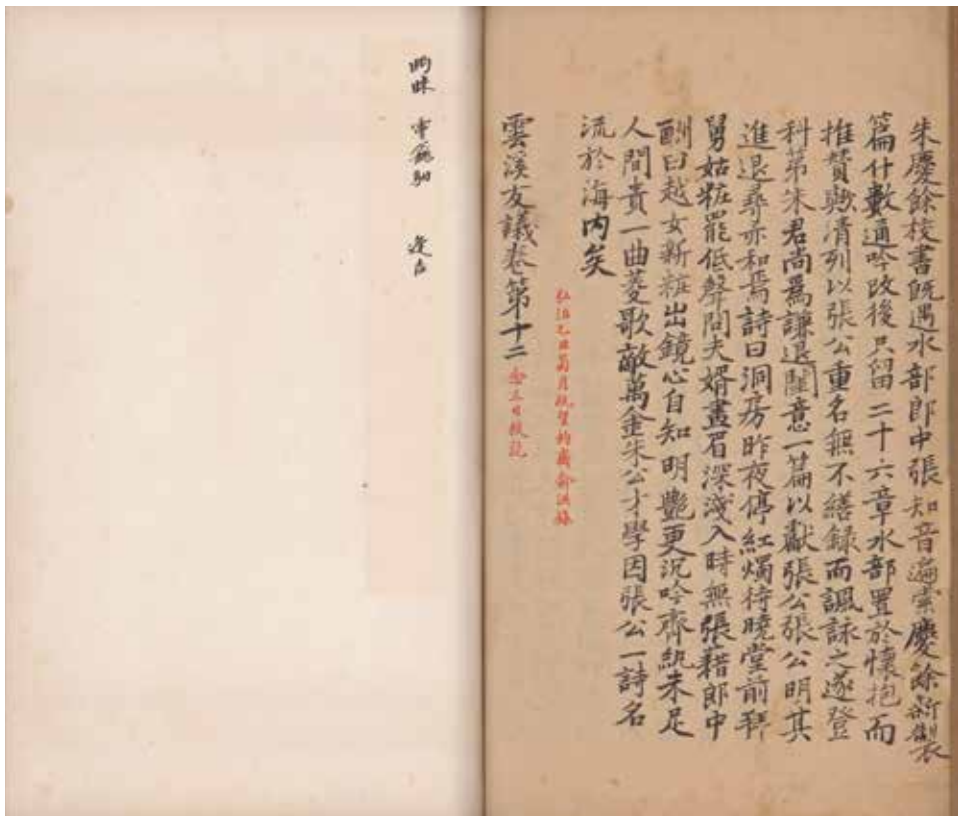 朱慶餘校書既遇水部郎中張知音遍索慶餘新製
篇什數通吟改後只留二十六章水部置於懷抱而
推贊歟清列以張公重名無不繕録而諷詠之遂登
科第朱君尚爲謙退閨意一篇以獻張公張公明其
進退尋亦和焉詩曰洞房昨夜停紅燭待曉堂前拜
舅姑粧罷低聲問夫婿畫眉深淺入時無張藉郎中
酬曰越女新粧出鏡心自知明艷更沉吟齊紈未足
人間貴一曲菱歌敵萬金朱公才學因張公一詩名
流於海内矣
弘治乙丑菊月既望約齋俞洪
雲溪友議卷第十二 念三日校訖